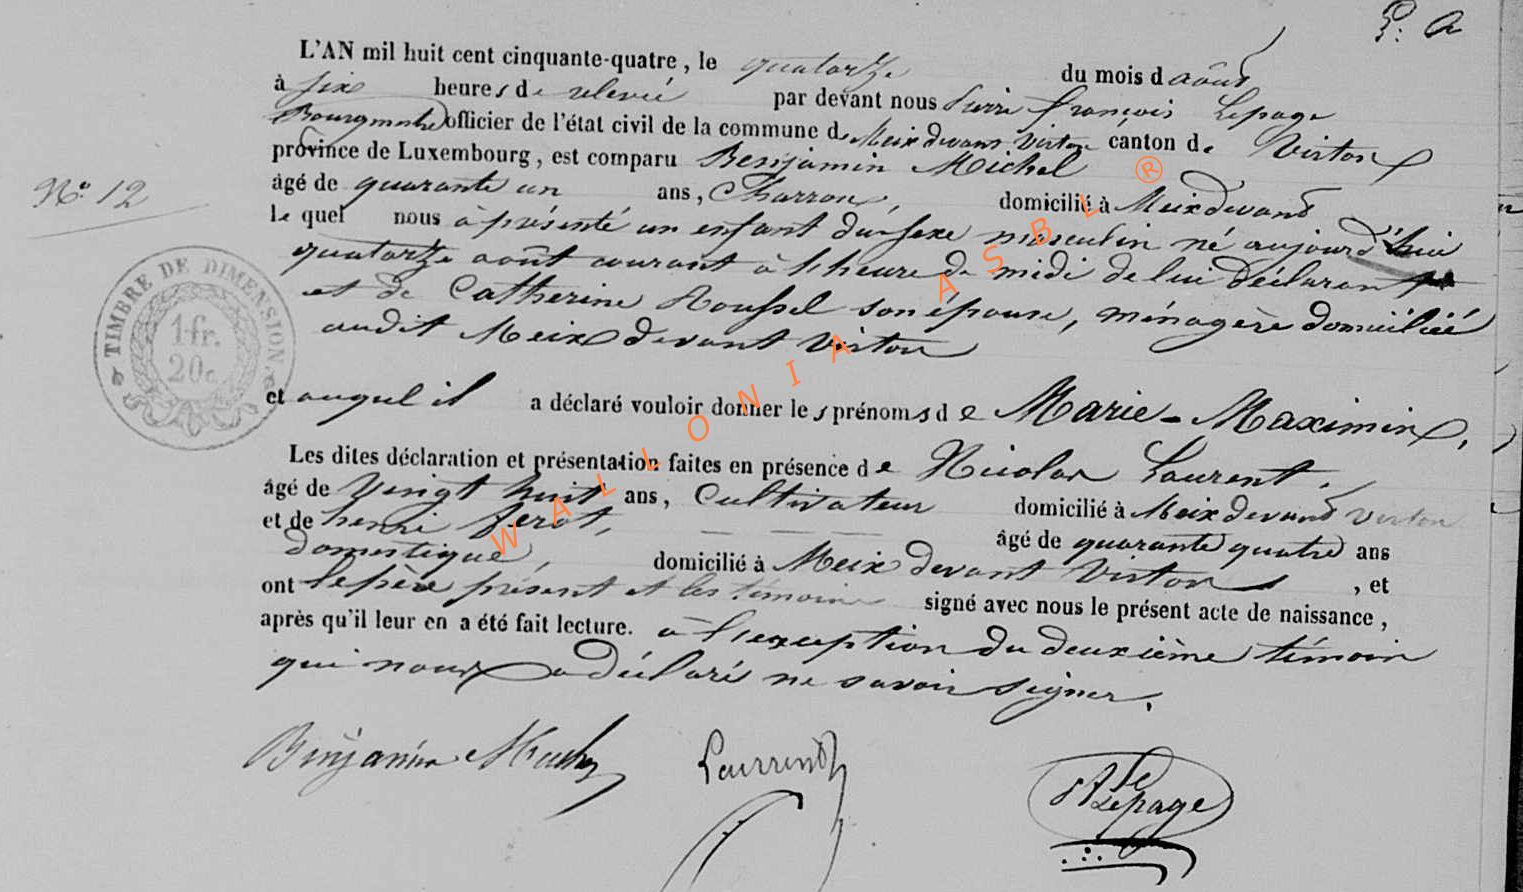 P. A
L'AN mil huit cent cinquante-quatre, le quatorze du mois d août
à six heures de relevée par devant nous Pierre françois Lepage
Bourgmestre officier de l'état civil de la commune de Meix devant Virton canton de Virton
province de Luxembourg, est comparu Benjamin Michel
N.º 12
âgé de quarante un ans, Charron, domicilié à Meix devant
le quel nous à présenté un enfant du sexe masculin né aujourd'hui
quatorze août courant à l'heure de midi de lui déclarant
et de Catherine Roussel son épouse, ménagère domiciliée
audit Meix devant Virton
TIMBRE DE DIMENSION.
1 fr.
20 c
et auquel il a déclaré vouloir donner les prénoms d e Marie-Maximin,
Les dites déclaration et présentation faites en présence de Nicolas Laurent,
âgé de Vingt huit ans, Cultivateur domicilié à Meix devant Virton
et de henri âgé de quarante quatre ans
domestique, domicilié à Meix devant Virton, et
ont le père présent et les témoins signé avec nous le présent acte de naissance,
après qu'il leur en a été fait lecture. à l'exception du deuxième témoin
qui nous a déclaré ne savoir signer.
Benjamin Laurent Lepage
WALLONIA ASBL ®